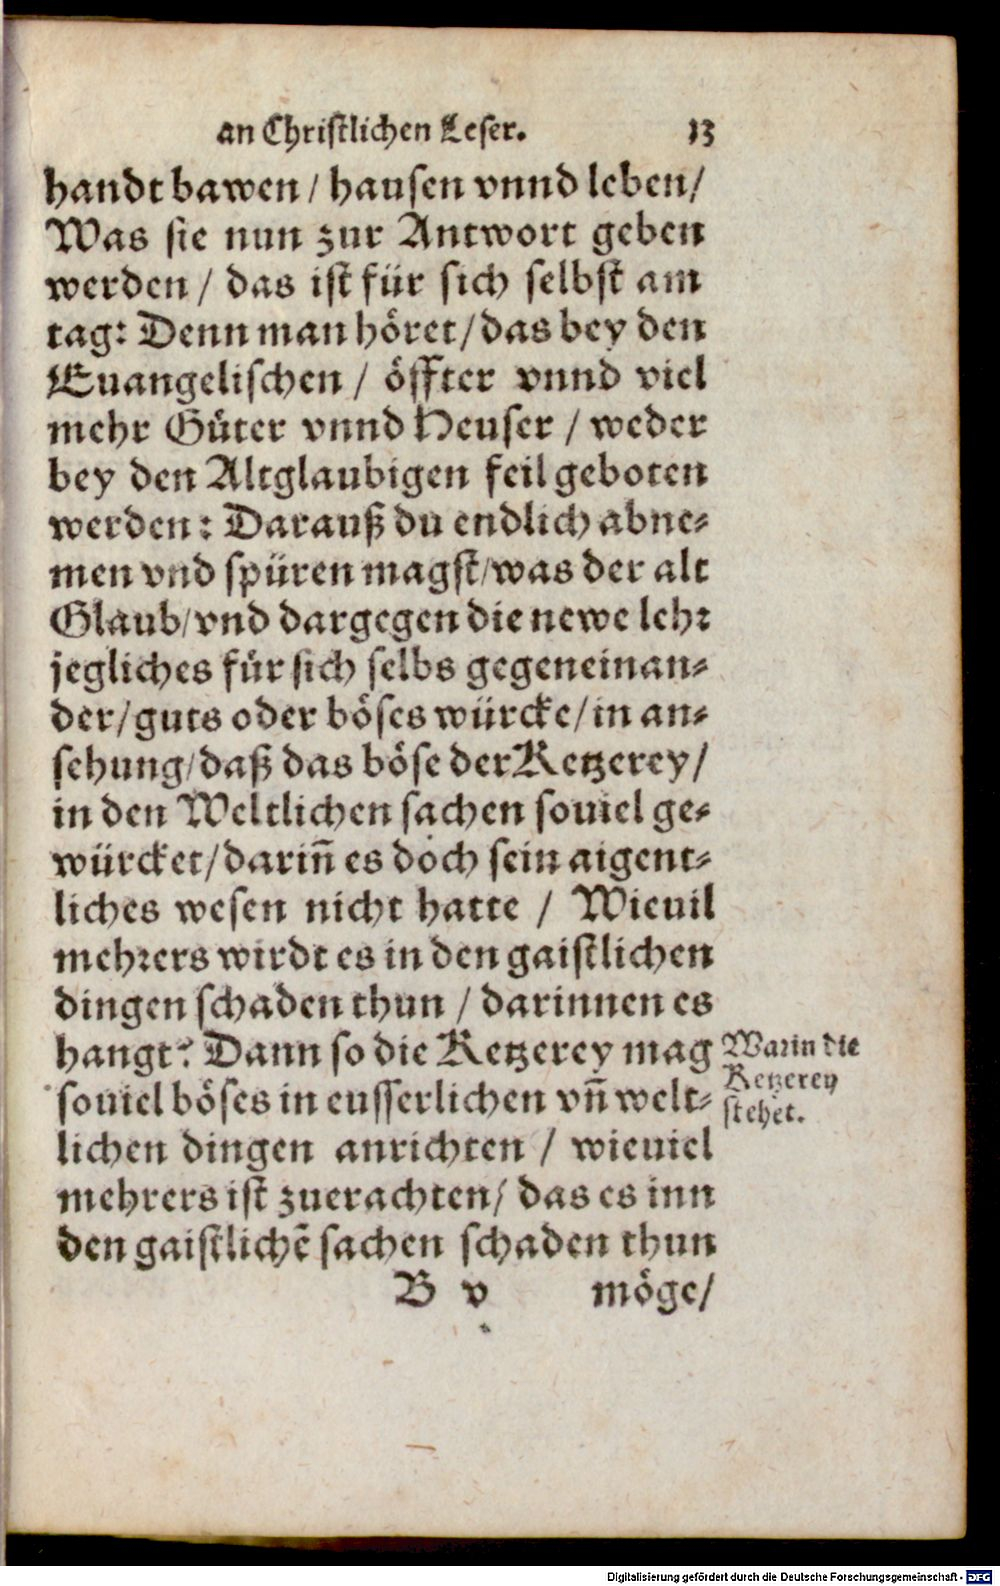 an Christlichen Leser. 13
handt bawen / hausen vnnd leben /
Was sie nun zur Antwort geben
werden / das ist für sich selbst am
tag: Denn man höret / das bey den
Euangelischen / öffter vnnd viel
mehr Güter vnnd Heuser / weder
bey den Altglaubigen feil geboten
werden: Darauß du endlich abne-
men vnd spüren magst / was der alt
Glaub / vnd dargegen die newe lehr
jegliches für sich selbs gegeneinan-
der / guts oder böses würcke / in an-
sehung / daß das böse der Ketzerey /
in den Weltlichen sachen souiel ge-
würcket / dariñ es doch sein aigent-
liches wesen nicht hatte / Wieuil
mehrers wirdt es in den gaistlichen
dingen schaden thun / darinnen es
hangt? Dann so die Ketzerey mag
souiel böses in eusserlichen vñ welt-
lichen dingen anrichten / wieuiel
mehrers ist zuerachten / das es inn
den gaistlichẽ sachen schaden thun
B v möge /
Warin die
Ketzerey
stehet.
Digitalisierung gefördert durch die Deutsche Forschungsgemeinschaft - DFG